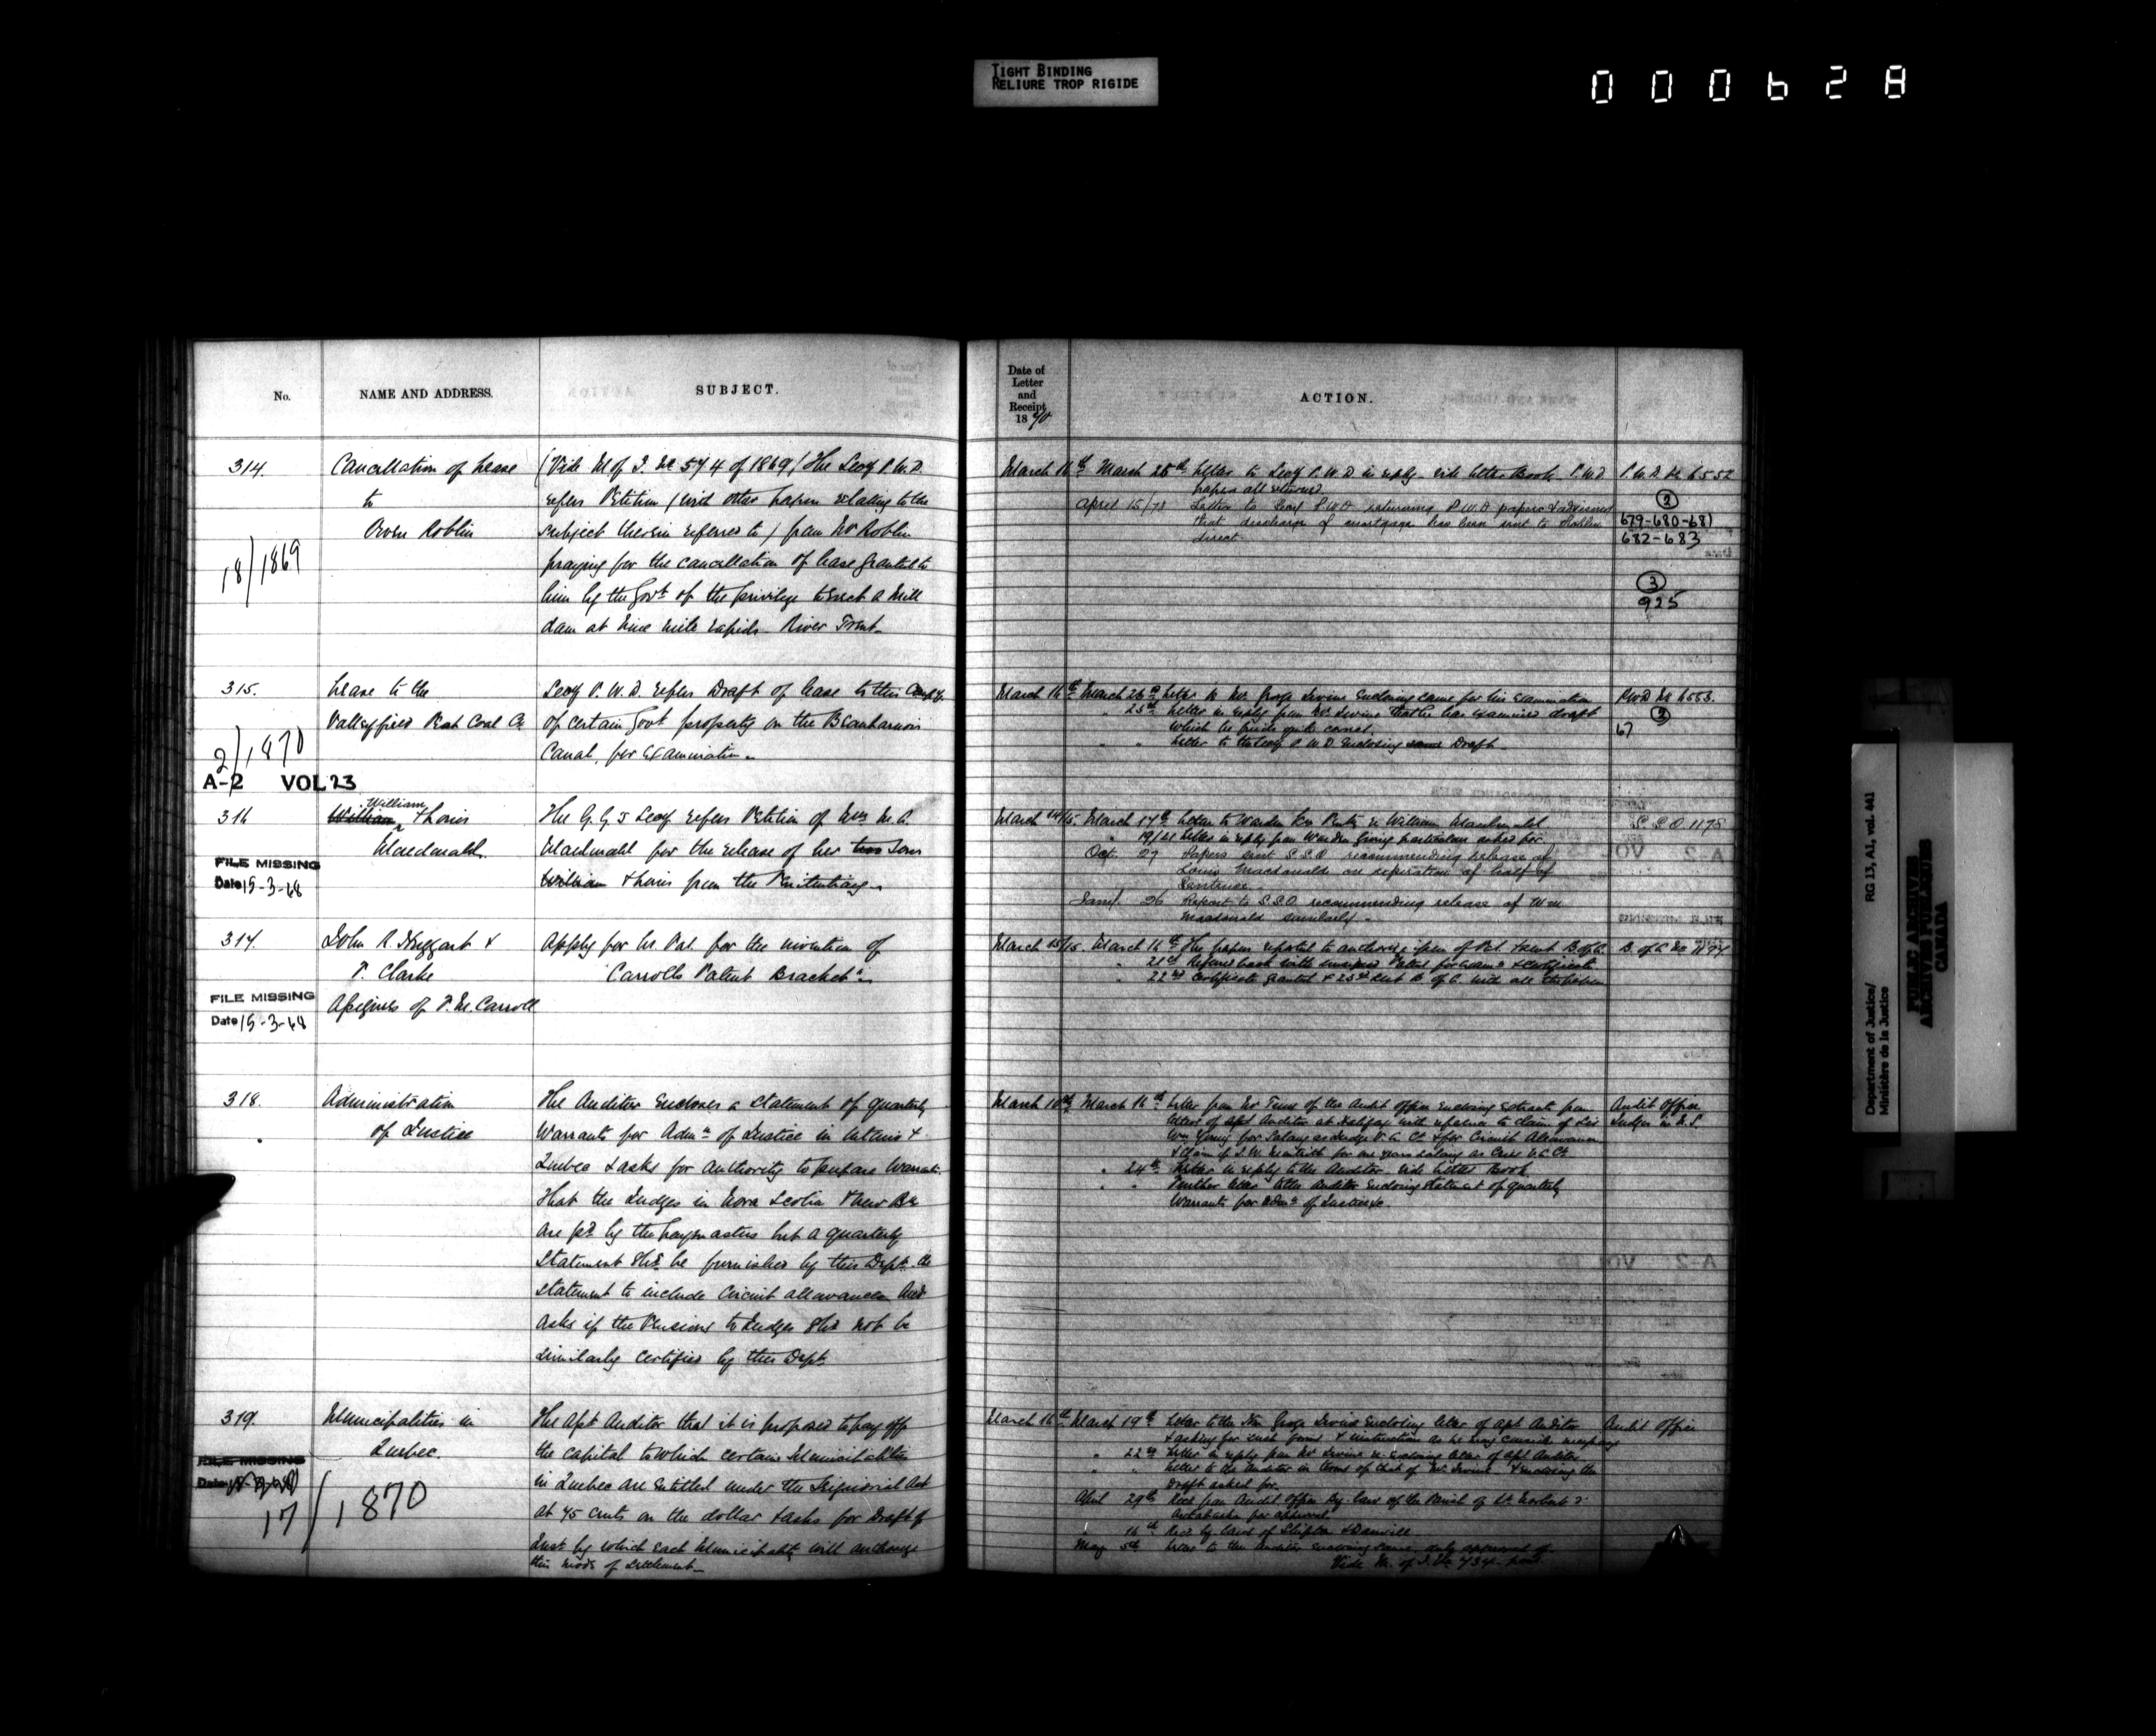 TIGHT BINDING
RELIURE TROP RIGIDE
000628
No.
NAME AND ADDRESS.
SUBJECT.
314.
Cancellation of Lease
to
Owen Roblin
18/1869
(Vide M of J. No 574 of 1869) The Secy P.W.D.
refers Petition (with other papers relating to the
subject therein referred to) from Mr Roblin
praying for the cancellation of lease granted to
him by the Govt of the privilege to erect a Mill
dam at Nine Mile rapids River Trent
315.
Lease to the
Valleyfield Peat Coal Co
2/1870
A-2 VOL 23
Secy P.W.D. refers Draft of lease to this Compy.
of certain Govt property on the Beauharnois
Canal, for Examination.
316
William
William & Louis
Macdonald.
FILE MISSING
Date 15-3-68
The G.G's Secy refers Petition of Mrs M. A.
Macdonald for the release of her two Sons
William & Louis from the Penitentiary.
317.
John R. Haggart &
P. Clarke
Assignees of P. M. Carroll
FILE MISSING
Date 15-3-68
Apply for Lr. Pat. for the invention of
"Carrolls Patent Bracket".
318.
Administration
of Justice
The Auditor Encloses a Statement of quarterly
Warrants for Admn of Justice in Ontario &
Quebec & asks for authority to prepare Warrants.
That the Judges in Nova Scotia & New Br.
are pd by the paymasters but a quarterly
Statement shd be furnished by this Dept. the
Statement to include Circuit allowances and
asks if the Pensions to Judges shd not be
similarly certified by this Dept.
319.
Municipalities in
Quebec.
FILE MISSING
17/1870
The Asst Auditor that it is proposed to pay off
the capital to which certain Municipalities
in Quebec are entitled under the Seigniorial Act
at 75 cents on the dollar & asks for Draft of
Inst. by which each Municipality will authorize
this mode of settlement
Date of
Letter
and
Receipt
1870
ACTION.
March 16th March 25th Letter to Secy P.W.D in reply vide Letter Book P.W.D
papers all returned
April 15/73 Letter to Secy P.W.D returning P.W.D papers & advising
that discharge of mortgage has been sent to Roblin
direct.
P.W.D No 6552
2
679-680-681
682-683
3
925
March 16th March 26th Letter to Mr. George Irvine Enclosing same for his Examination
25th Letter in reply from Mr. Irvine that he has examined draft
which he finds quite correct.
" " Letter to the Secy P.W.D Enclosing same Draft
PWD No 6553.
2
67
March 14/15. March 17th Letter to Warden Kn Penty re William Macdonald
" 19/21 Letter in reply from Warden giving particulars asked for
Oct. 27 Papers sent S.S.O recommending release of
Louis Macdonald on expiration of half of
Sentence.
Jany. 26 Report to S.S.O. recommending release of Wm
Macdonald similarly.
S.S.O 1175
March 15/15. March 16th The papers reported to authorize issue of Pat. & sent B of A.
" 21st Refered back with engrossed Patent for Examn & Certificate
" 22nd Certificate granted & 25th sent B. of A. with all the papers
B. of A No
March 16th March 16th Letter from Mr Tims of the Audit office enclosing extracts from
letters of Asst Auditor at Halifax with reference to claim of Sir
Wm Young for Salary as Judge V. A. Ct. & for Circuit Allowance
" 24th Letter in reply to the Auditor. vide Letter Book
" " Further letter to the Auditor Enclosing Statement of quarterly
Warrants for Admn of Justice &c.
Audit Office
Judges in N.S.
March 16th March 19th Letter to the Hon George Irvine Enclosing letter of Asst Auditor
& asking for such form & instruction as he may consider necessary
" 22nd Letter in reply from Mr Irvine re-enclosing letter of Asst Auditor
" " Letter to the Auditor in terms of that of Mr. Irvine & enclosing the
Draft asked for.
April 29th Recd from Audit Office By-law of the Parish of St Norbert
Arthabaska for approval.
" 16th Recd by laws of Shipton & Danville
May 5th Letter to the Auditor enclosing same duly approved of
Vide M. of J. No 734 post
Audit Office
Department of Justice/
Ministère de la Justice
RG 13, A1, vol. 441
PUBLIC ARCHIVES
ARCHIVES PUBLIQUES
CANADA